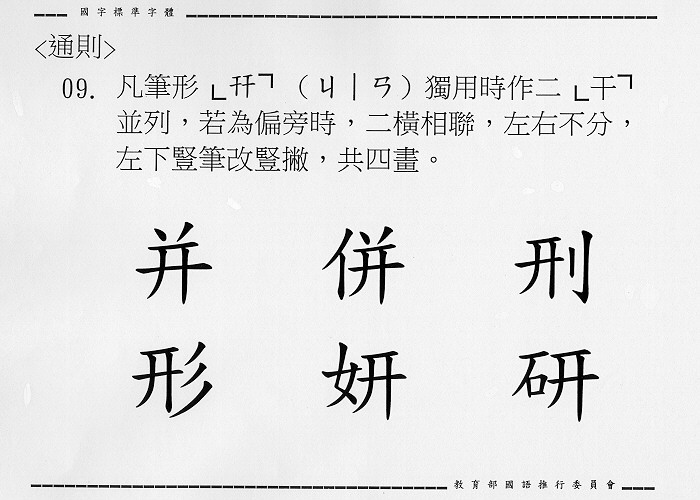 國字標準字體
<通則>
09. 凡筆形「幵」（ㄐㄧㄢ）獨用時作二「干」
並列，若為偏旁時，二橫相聯，左右不分，
左下豎筆改豎撇，共四畫。
并 併 刑
形 妍 研
教育部國語推行委員會